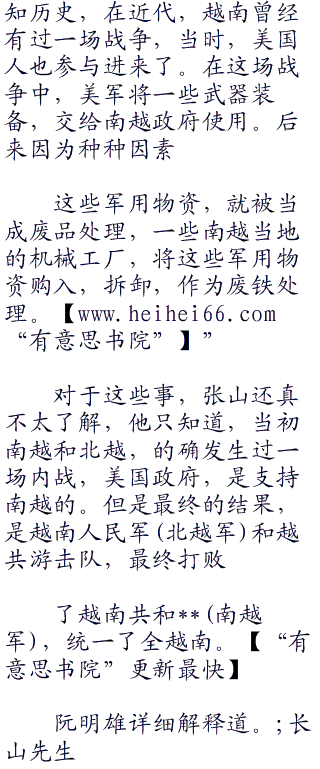 知历史，在近代，越南曾经
有过一场战争，当时，美国
人也参与进来了。在这场战
争中，美军将一些武器装
备，交给南越政府使用。后
来因为种种因素
这些军用物资，就被当
成废品处理，一些南越当地
的机械工厂，将这些军用物
资购入，拆卸，作为废铁处
理。【www.heihei66.com
“有意思书院”】”
对于这些事，张山还真
不太了解，他只知道，当初
南越和北越，的确发生过一
场内战，美国政府，是支持
南越的。但是最终的结果，
是越南人民军(北越军)和越
共游击队，最终打败
了越南共和**(南越
军)，统一了全越南。【“有
意思书院”更新最快】
阮明雄详细解释道。;长
山先生